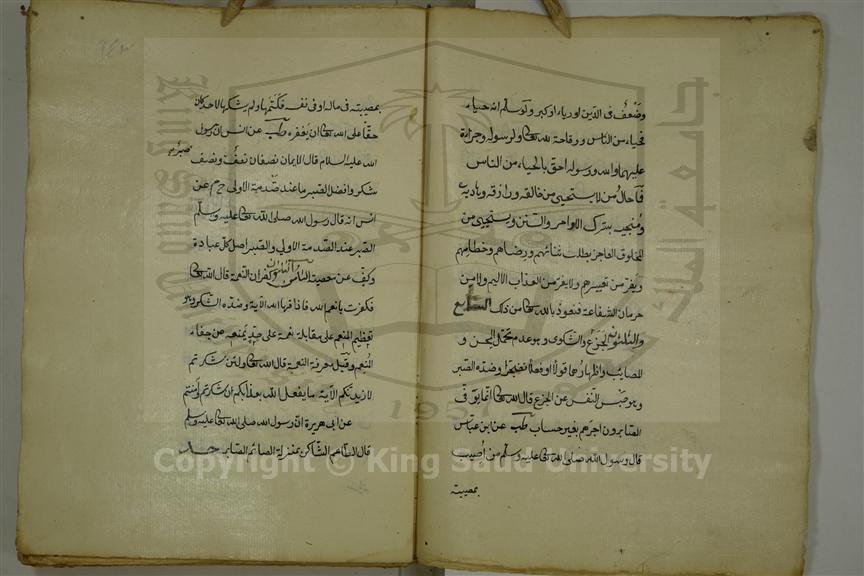 وضعف في الدين او رياء او كبر ولو سلم انه حياء
فحياء من الناس ووقاحة لله تعالى ولرسوله وجراءة
عليهما والله ورسوله احق بالحياء من الناس
فما حال من لا يستحيي من خالقه ورازقه وهاديه
ومنجيه بترك الاوامر والسنن ويستحيي من
المخلوق العاجز يطلب ثنائهم ورضاهم وخطامهم
ويفر من تعييرهم ولا يفر من العذاب الاليم ولا من
حرمان الشفاعة فنعوذ بالله تعالى من ذلك السابع
والثلثون الجزع والشكوى وهو عدم تحمل المحن و
المصائب واظهارها قولا او فعلا تضجرا وضده الصبر
وهو حبس النفس عن الجزع قال الله تعالى انما يوفى
الصابرون اجرهم بغير حساب طب عن ابن عباس
قال رسول الله صلى الله تعالى عليه وسلم من اصيب
بمصيبته
بمصيبته في ماله او في نفسه فكتمها ولم يشكها لاحد كان
حقا على الله تعالى ان يغفر له طب عن انس ان رسول
الله عليه السلام قال الايمان نصفان نصف ونصف
صبر
شكر وافضل الصبر ما عند صدمة الاولى خ م عن
انس انه قال رسول الله صلى الله تعالى عليه وسلم
الصبر عند الصدمة الاولى والصبر اصل كل عبادة
وكف عن معصية الثامن والثلثون كفران النعمة قال الله تعالى
فكفرت بانعم الله فاذاقها الله الآية وضده الشكر وهو
تعظيم المنعم على مقابلة نعمة على حد يمنعه عن جفاء
المنعم وقيل معرفة النعمة قال الله تعالى ولئن شكرتم
لازيدنكم الآية ما يفعل الله بعذابكم ان شكرتم وآمنتم
عن ابي هريرة ان رسول الله صلى الله تعالى عليه وسلم
قال الطاعم الشاكر بمنزلة الصائم الصابر حد
Copyright © King Saud University
جامعة الملك
King Saud
1957